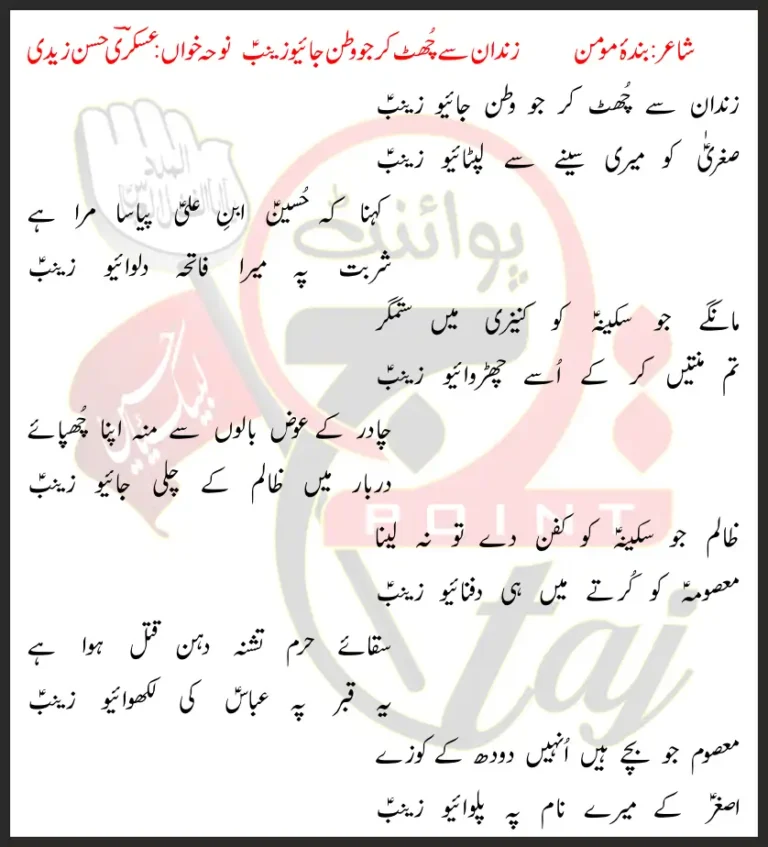 شاعر: بندۂ مومن زندان سے چُھٹ کر جو وطن جائیو زینبؑ نوحہ خواں: عسکری حسن زیدی
زندان سے چُھٹ کر جو وطن جائیو زینبؑ
صغریٰؑ کو میری سینے سے لپٹائیو زینبؑ
کہنا کہ حُسینؑ ابنِ علیؑ پیاسا مرا ہے
شربت پہ میرا فاتحہ دلوائیو زینبؑ
مانگے جو سکینہؑ کو کنیزی میں ستمگر
تم منتیں کر کے اُسے چھڑوائیو زینبؑ
چادر کے عوض بالوں سے منہ اپنا چُھپائے
دربار میں ظالم کے چلی جائیو زینبؑ
ظالم جو سکینہؑ کو کفن دے تو نہ لینا
معصومہؑ کو کُرتے میں ہی دفنائیو زینبؑ
سقائے حرم تشنہ دہن قتل ہوا ہے
یہ قبر پہ عباسؑ کی لکھوائیو زینبؑ
معصوم جو بچے ہیں اُنہیں دودھ کے کوزے
اصغرؑ کے میرے نام پہ پلوائیو زینبؑ
پوائنٹ
المدد
لبیک یا حسین
POINT
taj